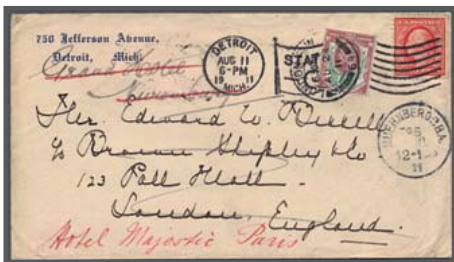 750 Jefferson Avenue,
Detroit, Mich.
Grand Hotel
Nuremberg
DETROIT
AUG 11
6-PM
19 11
MICH.
STAT
LONDON
Mr. Edward W.
c/o Brown Shipley & Co
123 Pall Mall.
London, England.
Hotel Majestic Paris
12-1
11